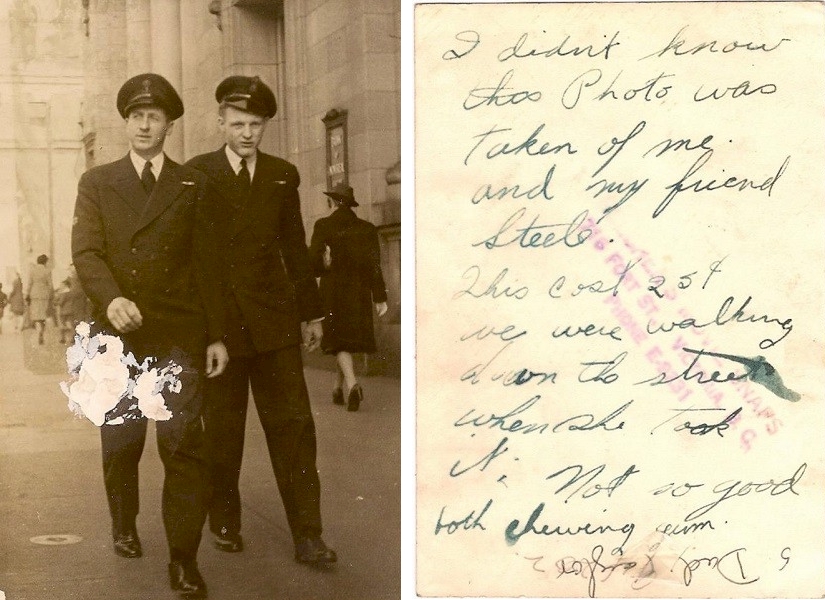 I didn't know
this Photo was
taken of me.
and my friend
Steele.
This cost 25¢
we were walking
down the street
when she took
it.
Not so good
both chewing gum.
FORT ST.
SNAPS
PHONE